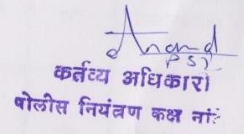 Anand
PSI
कर्तव्य अधिकारी
पोलीस नियंत्रण कक्ष नां